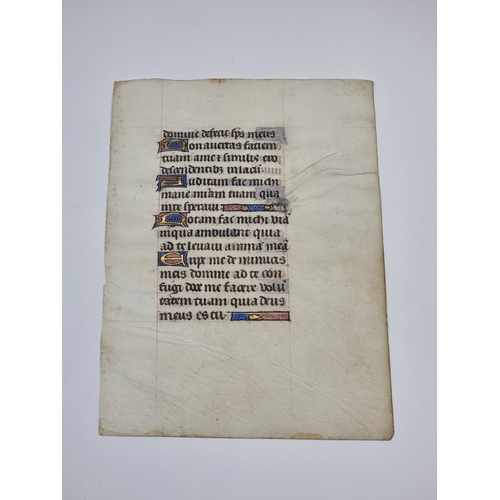 domine defecit sps meus
Non avertas faciem
tuam a me et similis ero
descendentibz in lacū
Auditam fac michi
mane miām tuam quia
in te speravi
Notam fac michi viā
in qua ambulem quia
ad te levavi animā meā
Eripe me de inimicis
meis domine ad te con
fugi doce me facere volū
tatem tuam quia deus
meus es tu.